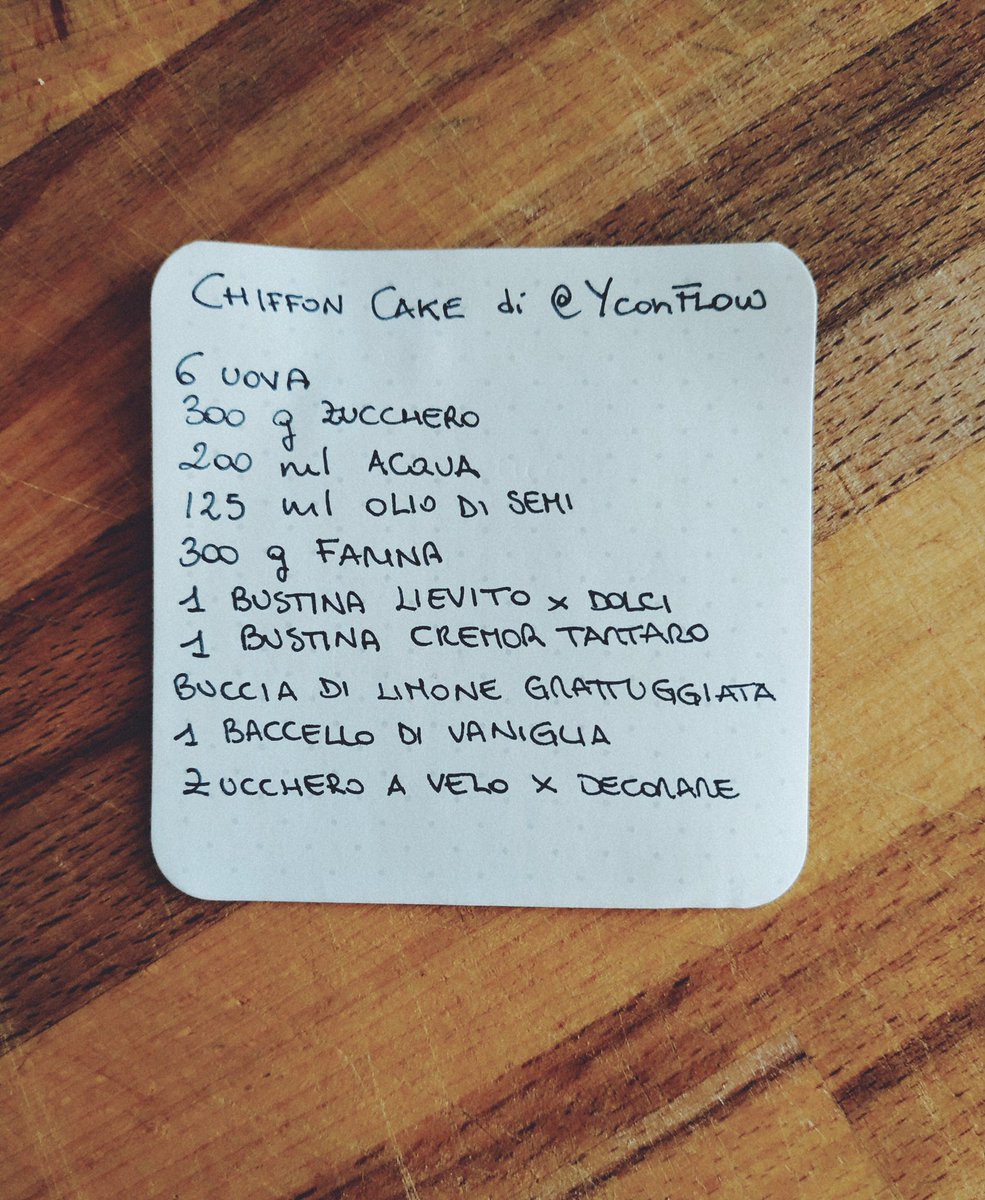 CHIFFON CAKE di @YCONFLOW
6 UOVA
300 g ZUCCHERO
200 ml ACQUA
125 ml OLIO DI SEMI
300 g FARINA
1 BUSTINA LIEVITO x DOLCI
1 BUSTINA CREMOR TARTARO
BUCCIA DI LIMONE GRATTUGGIATA
1 BACCELLO DI VANIGLIA
ZUCCHERO A VELO X DECORARE